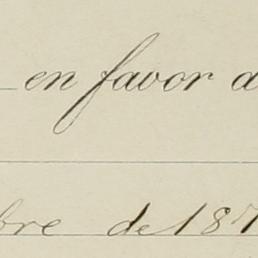 en favor d
bre de 187